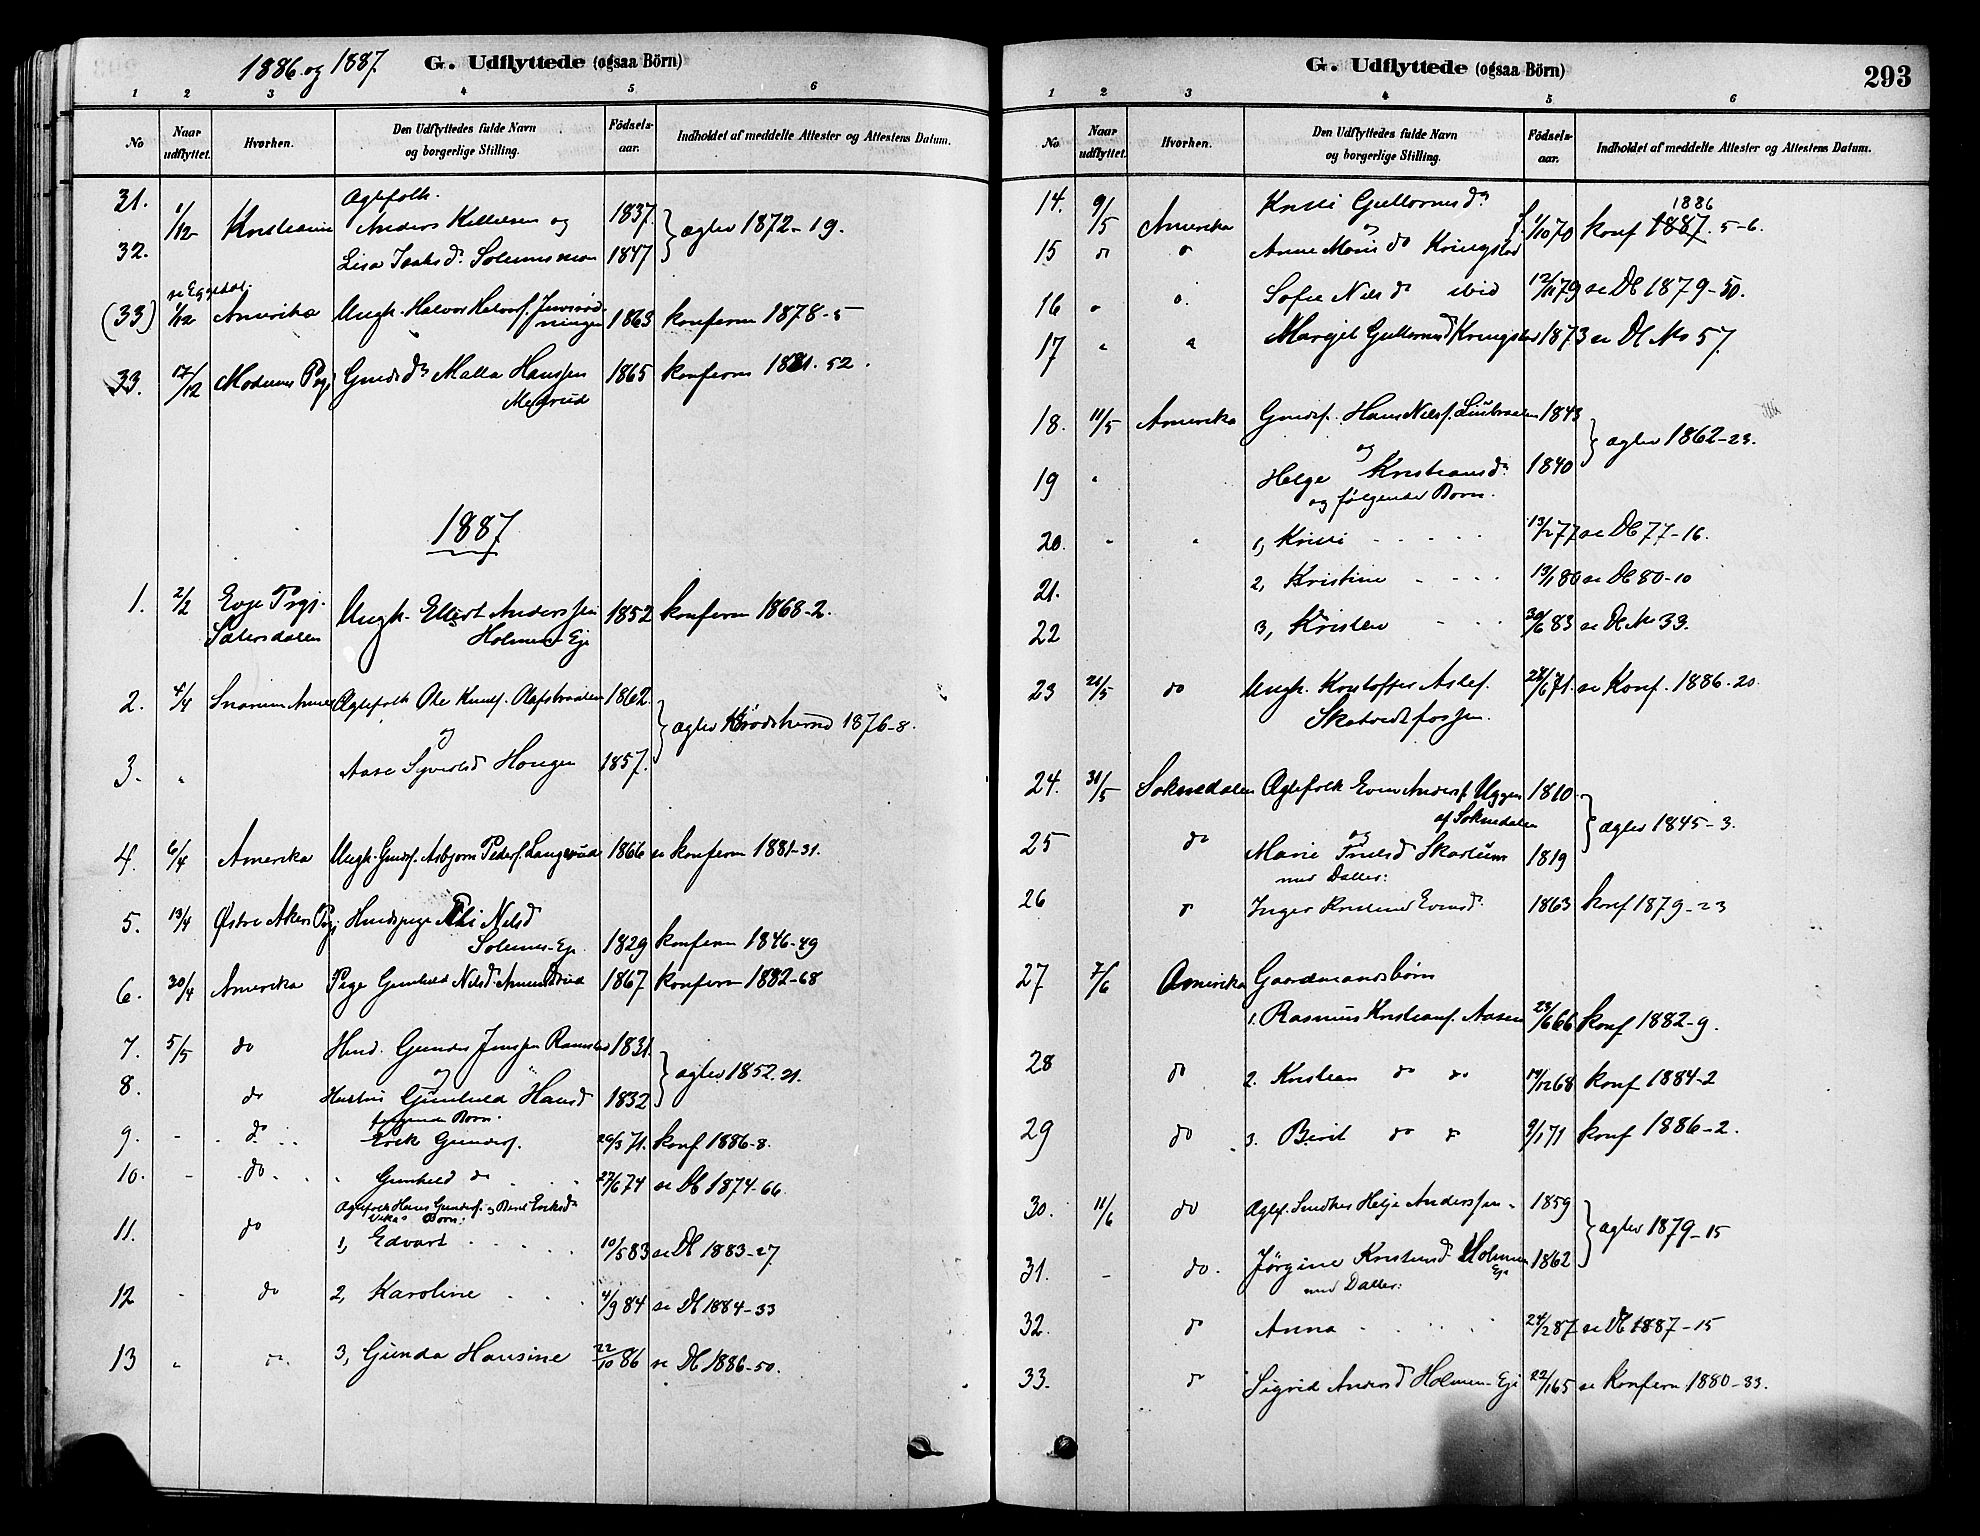 1886 og 1887.
G. Udflyttede (ogsaa Börn)
1 2 3 4 5 6
No
Naar udflyttet.
Hvorhen.
Den Udflyttedes fulde Navn og borgerlige Stilling.
Födsels-aar.
Indholdet af meddelte Attester og Attestens Datum.
Ægtefolk.
31. 1/12 Kristiania Anders Killelsen og 1837. } ægtev 1872-19.
32. Lisa Isaksd. Solumsmoen 1847
se Eggedal.
(33) 1/12 Amerika Ungk. Halvor Halvorsf. 1863 konferm 1878-5
33. 17/12 Modums Prgj Gmdsdr Malla Hanssen 1865 konferm 1881-52.
1887
1. 2/2 Evje Prgj. Ungk. Ellert Anderssen 1852 konferm 1868-2.
Sætersdalen Holmen-Eje
2. 4/4 Snarum Annex Ægtefolk Ole Knudsf. Olafsbraaten 1862. } ægtev Krødsherred 1876-8.
og
3. " Aase Syversd Haugen 1857.
4. 6/4 Amerika Ungk. Gmdsf. Asbjørn Pedersf. Langerud 1866 se konferm 1881-31.
5. 13/4 Østre Akers Prgj Huusd. pige Nilsd
Solumss-Eje 1829 konferm 1846-49
6. 30/4 Amerika Pige Gunhild Nilsd. Amundrud 1867 konferm 1882-68
7. 5/5 do Husm. Gunder Jenssen Ramstad 1831. } ægtev 1852.21.
og
8. do Hustru Gunhild Hansd 1832
følgende Børn.
9. - do Erik Gundersf. 29/3 71. konf 1886-8.
10. - do " Gunhild do 27/6 74 se Db 1874-66.
Ægtefolk Hans Gundersf. og Berit Eriksdr
Børn:
11. do 1, Edvart 10/5 83 se Db 1883-27
12 - do 2, Karoline 4/9 84 se Db 1884-33
13 " do. 3, Gunda Hansine 22/10 86 se Db 1886-50.
G. Udflyttede (ogsaa Börn)
293
1 2 3 4 5 6
No.
Naar udflyttet.
Hvorhen.
Den Udflyttedes fulde Navn og borgerlige Stilling.
Födsels-aar.
Indholdet af meddelte Attester og Attestens Datum.
1886
14. 9/5 Amerika Kristi Guttormsdr 1/10 70 konf 1887. 5-6.
og
15 do do Anne Marie do Kringstad
16 " do. Sofie Nilsd ibid 12/11 79 se Db 1879-50.
17 " " Margit Guttormsd Kringstad 1873 se Db No 57.
18. 11/5 Amerika Gmdsf. Hans Nilsf. Liubraaten 1843 } ægtev 1862-23.
og
19 " Helge Kristiansdr 1840
og følgende Børn.
20. " " 1, Kristi 13/2 77 se Db 77-16.
21. 2, Kristine 13/1 80 se Db 80-10
22 3, Kristen 30/6 83 se Db No 33.
23 21/5 do Ungk. Kristoffer Aslef. 28/6 71. se Konf. 1886-20.
Skatvedtfossen.
24. 31/5 Soknedalen Ægtefolk Even Andersf. Uggen 1810. } ægtev 1845-3.
af Soknedalen
og
25 do Marie Trulsd Skartum 1819
med Datter:
26 do Inger Kristine Evensd. 1863 konf 1879-23
27 7/6 Amerika Gaardmandsbørn
1. Rasmus Kristiansf. Aasen 23/6 66 konf 1882-9.
28 do 2. Kristian do do 19/12 68 konf 1884-2
29 do 3. Berit do do 9/1 71 konf 1886-2.
30. 11/6 do Ægtef. Smedkar Helge Anderssen 1859 } ægtev 1879-15
31. - do. Jørgine Kristensd. Holmen 1862
Eje
med Datter:
32. do Anna 24/2 87 se Db 1887-15
33. do Sigrid Andersd Holmen-Eje 22/1 65 se Konferm 1880-33.